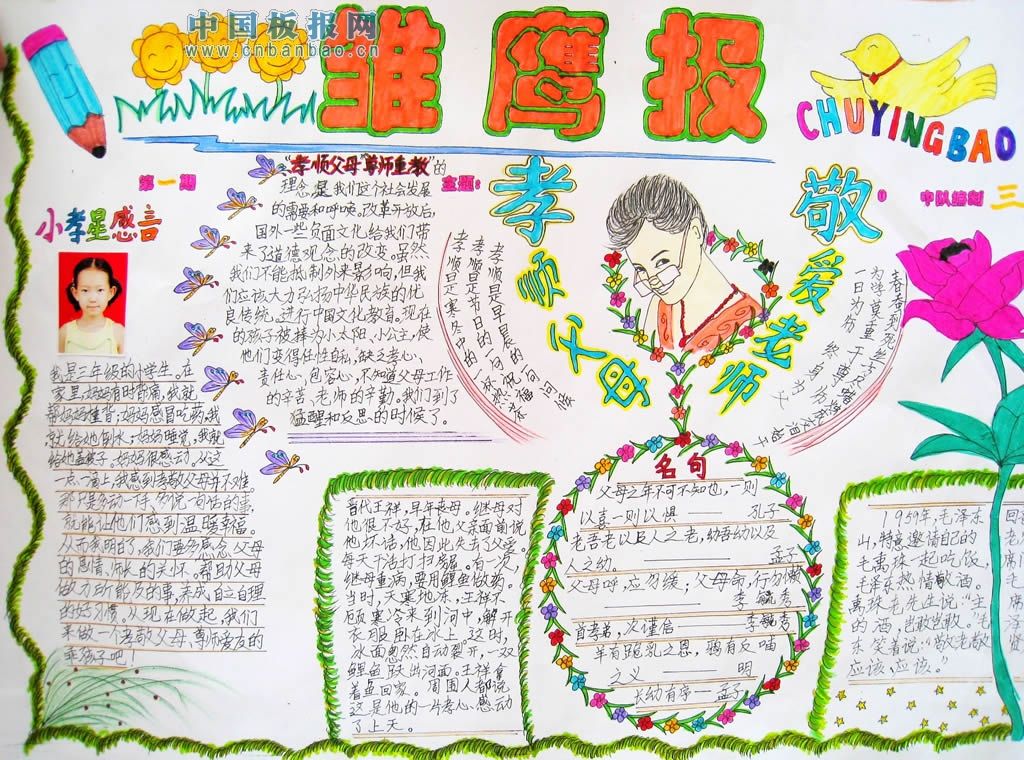 中国板报网
www.cnbanbao.cn
雏鹰报
CHUYINGBAO
第一期
主题:
孝顺父母
敬爱老师
中队编制
三
小孝星感言
我是三年级的小学生。在
家里,妈妈有时背痛,我就
帮妈妈捶背;妈妈感冒吃药,我
就给她倒水;妈妈睡觉,我就
给她盖被子。妈妈很感动。从这
一点一滴上,我感到孝敬父母并不难。
就能让他们感到温暖幸福。
从而我明白了,我们要多感念父母
的恩情、师长的关怀。帮助父母
做力所能及的事,养成自立自理
的好习惯。从现在做起,我们
来做一个孝敬父母、尊师爱友的
乖孩子吧!
"孝顺父母""尊师重教"的
理念,是我们这个社会发展
的需要和呼唤。改革开放后,
国外一些负面文化给我们带
来了道德观念的改变。虽然
我们不能抵制外来影响,但我
们应该大力弘扬中华民族的优
良传统。进行中国文化教育。现在
的孩子被捧为小太阳、小公主,使
他们变得任性自私,缺乏孝心,
责任心,包容心,不知道父母工作
的辛苦、老师的辛勤。我们到了
猛醒和反思的时候了。
孝顺是早晨的一句问候
孝顺是节日的一句祝福
孝顺是寒冬中的一杯热茶
春蚕到死丝方尽
为学莫重于尊师
一日为师 终身为父
晋代王祥,早年丧母。继母对
他很不好,在他父亲面前说
他坏话,他因此失去了父爱。
每天干活打扫房屋。有一次,
继母重病,要用鲤鱼做药。
当时,天寒地冻,王祥不
顾寒冷来到河中,解开
衣服卧在冰上。这时,
冰面忽然自动裂开,一双
鲤鱼跃出河面。王祥拿
着鱼回家。周围人都说
这是他的一片孝心、感动
了上天。
名句
父母之年不可不知也,一则
以喜一则以惧——孔子
老吾老以及人之老,幼吾幼以及
人之幼。——孟子
父母呼,应勿缓;父母命,行勿懒
——李毓秀
首孝弟,次谨信——李毓秀
羊有跪乳之恩,鸦有反哺
之义——明
长幼有序—孟子
1959年,毛泽东
山,特意邀请自己的
毛禹珠一起吃饭,
毛泽东热情敬酒。
禹珠老先生说:"主席
的酒,岂敢岂敢。"毛泽
东笑着说:"敬老敬贤
应该、应该。"